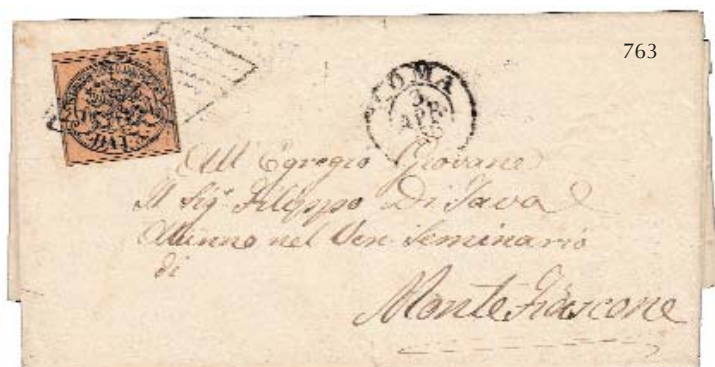 763
BAJ
ROMA
3
APR
All' Egregio Giovane
Il Sig.r Filippo Di
Alunno nel Ven. Seminario
di
Montefiascone